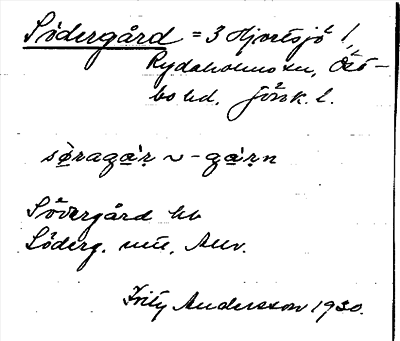 Södergård = 3 Hjortsjö /,
Rydaholms sn, Öst-
bo hd, Jönk. l.
sö̀ragá̱ṛ ~ -gá̱ṛn
Södergård hb
Söderg. mtl. Anv.
Fritz Andersson 1930.